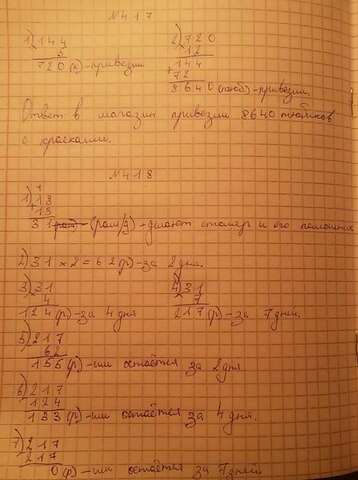 №417
1) 144
5
720(к)-привезли
2) 720
12
144
+72
8640(тюб)-привезли.
Ответ в магазин привезли 8640 тюбиков
с красками.
№418
1
1) +18
13
31 (рам/д)-делают столяр и его помошник
2) 31 × 2 = 62(р)-за 2 дня.
3) 31
4
124(р)-за 4 дня
4) 31
7
217(р)-за 7 дней.
5) 217
62
155(р)-им остаётся за 2 дня
6) 217
124
133(р)-им остаётся за 4 дня.
7) 217
217
0(р)-им остаётся за 7 дней